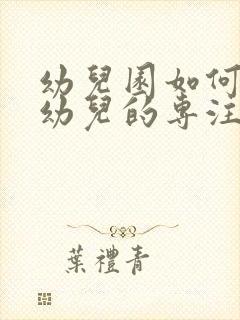 幼兒園如何
幼兒的專注
葉禮青